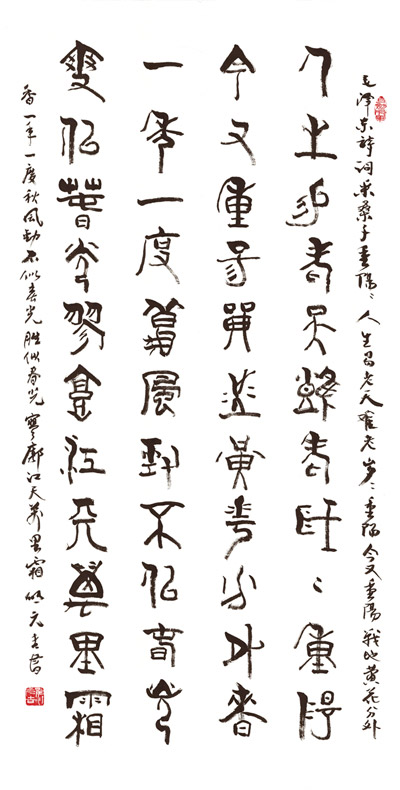 毛澤东詩詞采桑子重陽〻人生易老天难老岁〻重陽今又重陽戰地黄花分外
人生易老天難老歲〻重陽
今又重陽戰地黃花分外香
一年一度秋風勁不似春光
勝似春光寥廓江天萬里霜
香一年一度秋风勁不似春光胜似春光寥廓江天萬里霜